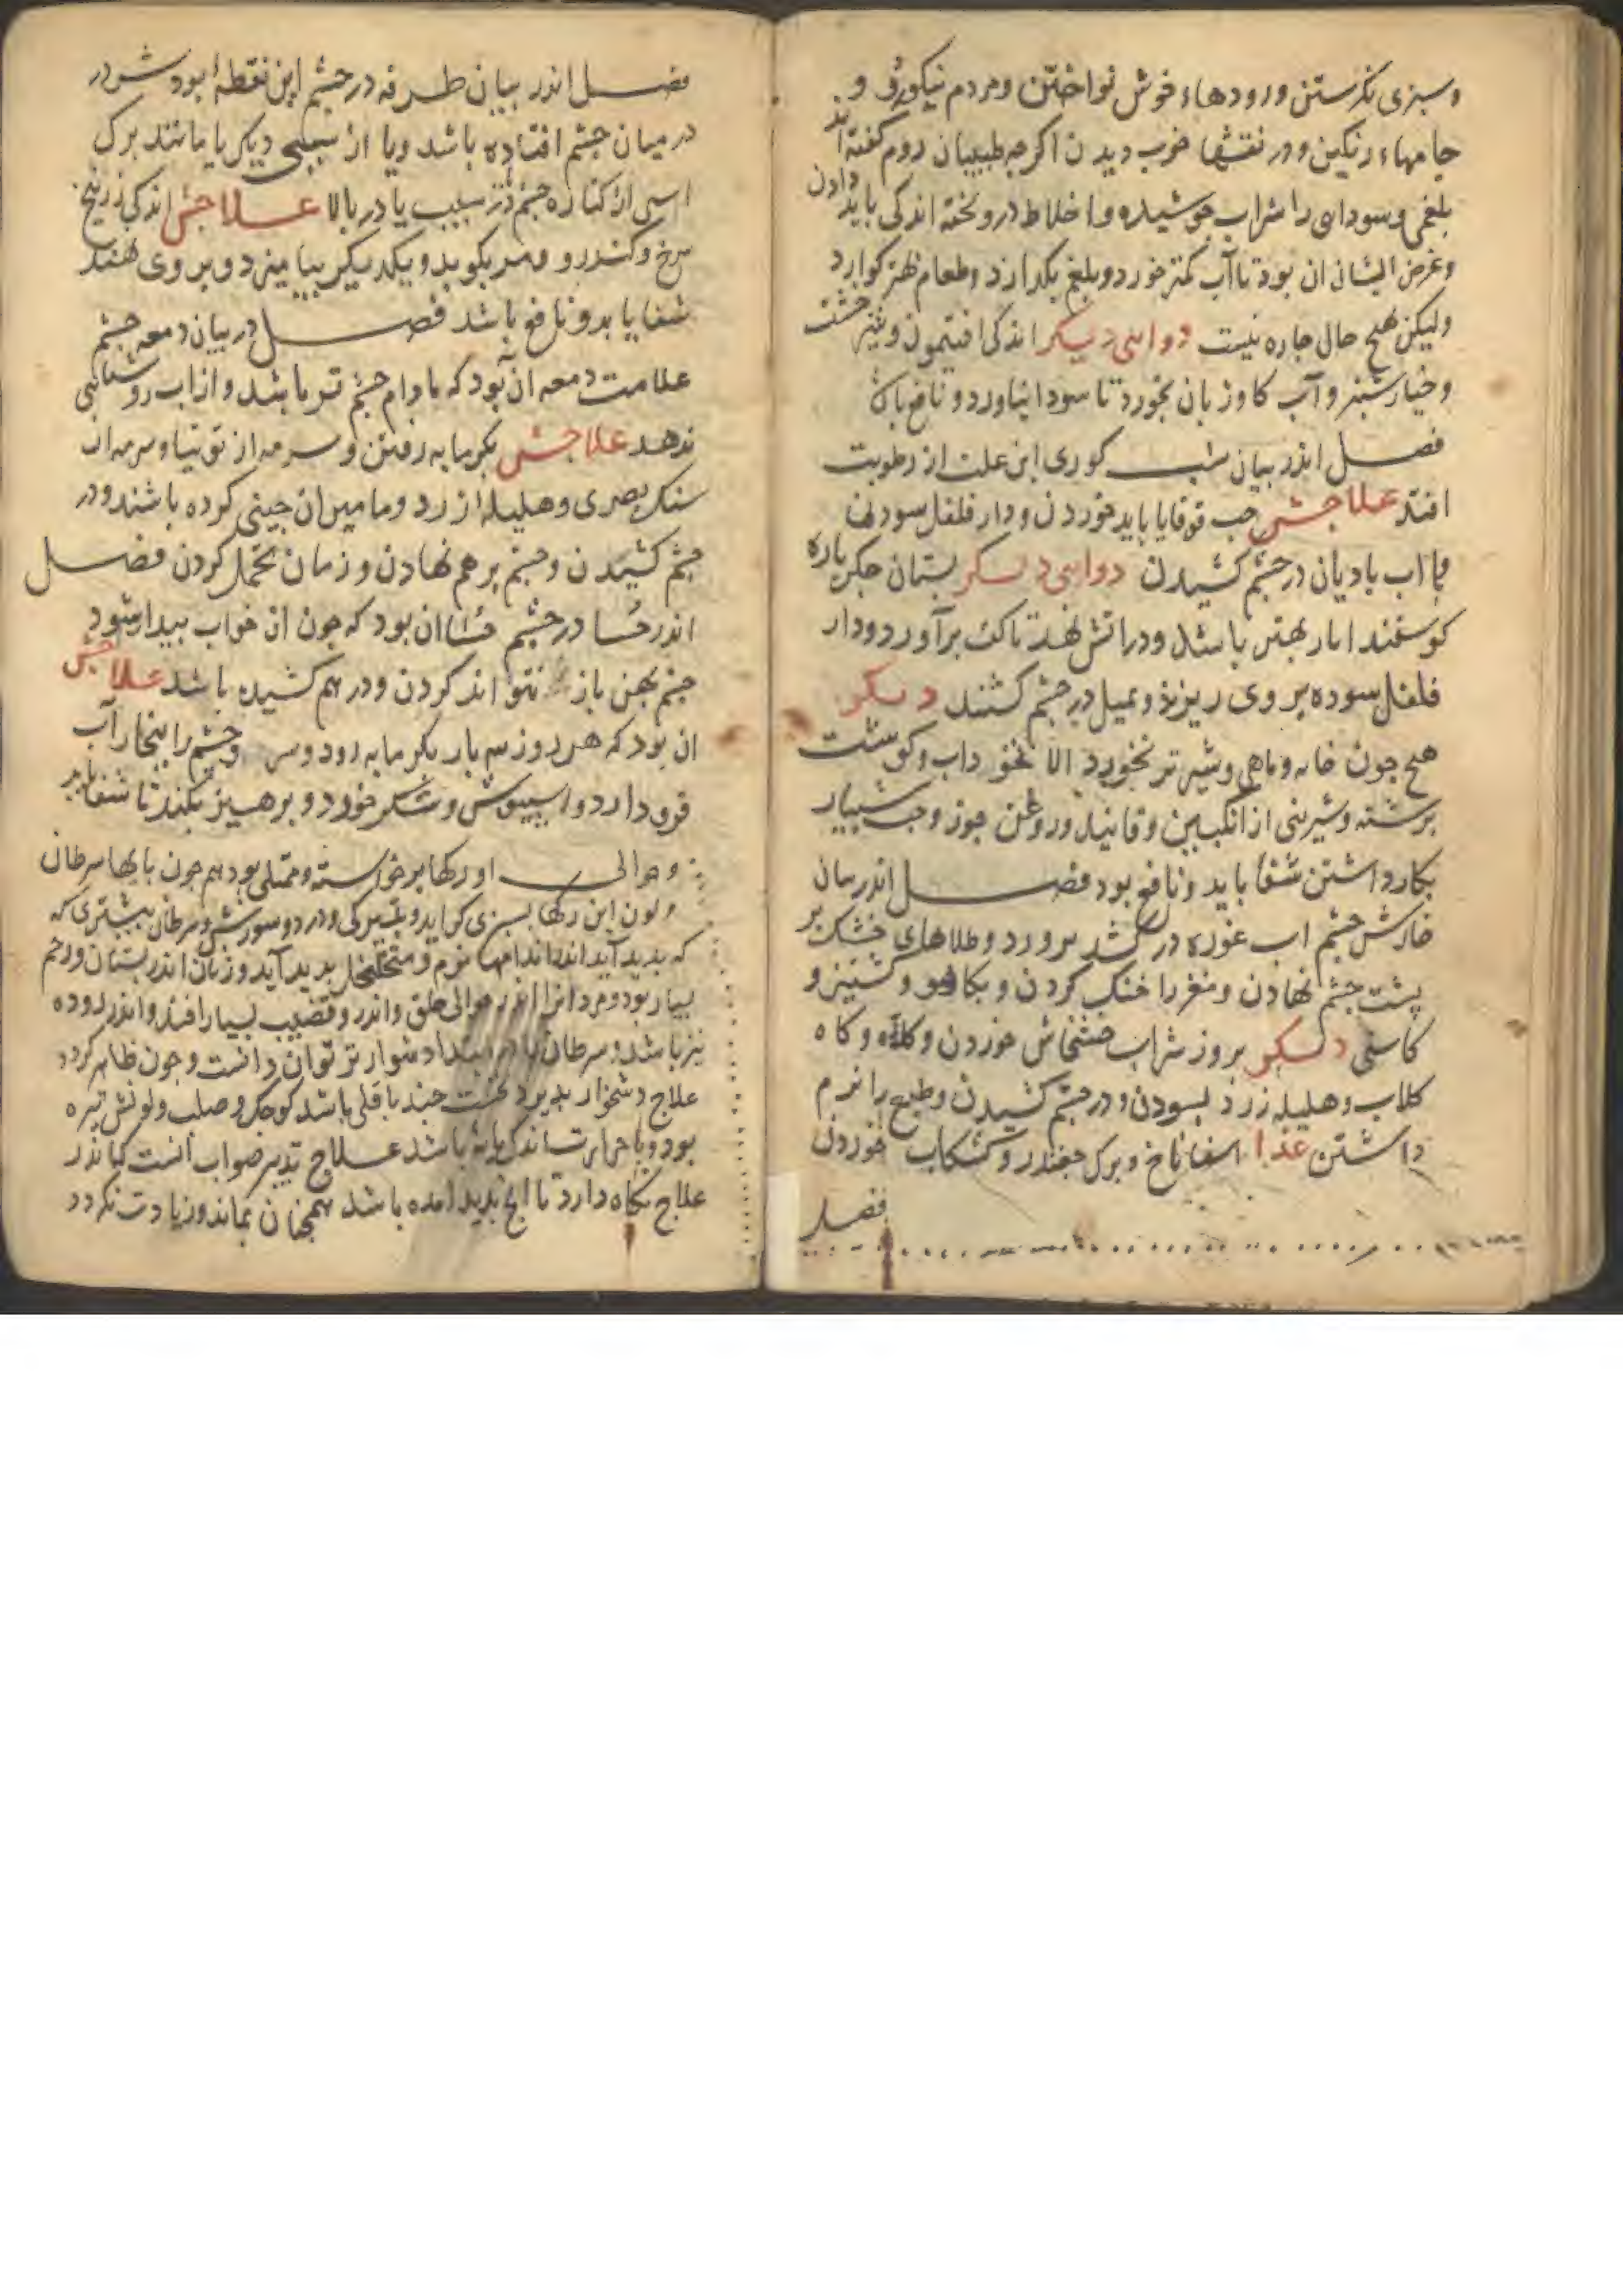 و سبزی نکرستن و رودهاء خوش نواختن و مردم نیکوروی و
جامهاء رنکین و در نقشها خوب دیدن اکرجه طبیبان روم کفته اند
بلغمی و سودای را شراب جوشیده و اخلاط درو بخته اندکی باید دادن
و غرض ایشان ان بود تا آب کمتر خورد و بلغم بکدازد و طعام کوارد
ولیکن هیج حال جاره نیست دوای دیکر اندکی افتیمون و شیر خشت
و خیارشنبر و آب کاوزبان بخورد تا سودا نیاورد و نافع باشد
فصل اندر بیان شب کوری این علت از رطوبت
افتد علاجش حب قوقایا باید خوردن و دار فلفل سودن
با اب بادیان در جشم کشیدن دوای دیکر بستان جکر باره
کوسفند بهتر باشد و در اتش نهد تا کف برآورد و دار
فلفل سوده بر وی ریزد و بمیل در جشم کشند دیکر
هیج جون و ماهی و شیر تر نخورد الا نخود اب و کوشت
برشته و شیرینی از انکبین و فانید و روغن جوز و حب شبیار
بکار داشتن شفا یابد و نافع بود فصل اندر بیان
خارش جشم اب غوره در برورد و طلاهای خشک بر
پشت جشم نهادن و مغز را خنک کردن و بکاهو و کشنیز و
کاسنی دیکر بروز شراب خشخاش خوردن و کلاه و کاه
کلاب و هلیله زرد بسودن و در جشم کشیدن و طبع را نرم
داشتن غذا اسفاناخ و برک جغندر و کشکاب خوردن
فصل
فصل اندر بیان طرفه در جشم این نقطهٔ بود
در میان جشم افتاده باشد و یا از سببی دیکر یا مانند برک
اسی از کناره جشم یا در بالا علاجش اندکی زرنیخ
سرخ و کندر و بکوبد و یکدیکر بیامیزد و بر وی نهند
شفا یابد و نافع باشد فصل در بیان دمعه جشم
علامت دمعه آن بود که مادام جشم تر باشد و از اب روشنایی
ندهد علاجش بکرمابه رفتن و سرمه از توتیا و سرمه از
سنک بصری و هلیله زرد و مامیران جینی کرده باشند و در
جشم کشیدن و جشم برهم نهادن و زمان تحمل کردن فصل
اندر جسا در جشم جسا ان بود که جون از خواب بیدار شود
جشم بهن باز نتواند کردن و درهم کشیده باشد علاجش
ان بود که هر روز سه بار بکرمابه رود و سر و جشم را ببخار آب
فرو دارد و و شکر خورد و برهیز بکند تا شفا یابد
و حوالی او رکها برخواسته و ممتلی بود هم جون بایها سرطان
و لون این رکها بسبزی کراید و بتیرکی و در دو سوزش و سرطان بیشتری که
که بدید آید اندر اندامها نرم و متخلخل بدید آید و زنان اندر بستان و رحم
بسیار بود و مردانرا اندر حوالی حلق و اندر قضیب بسیار افتد و اندر روده
نیز باشد و سرطان را در ابتدا دشوارتر توان دانست و جون ظاهر کردد
علاج دشخوار بذیرد نخست جند باقلی باشد کوجک و صلب و لونش تیره
بود و با حرارت اندک مایه باشد علاج تدبیر صواب انست کی اندر
علاج نکاه دارد تا انج بدید امده باشد همجنان بماند و زیادت نکردد